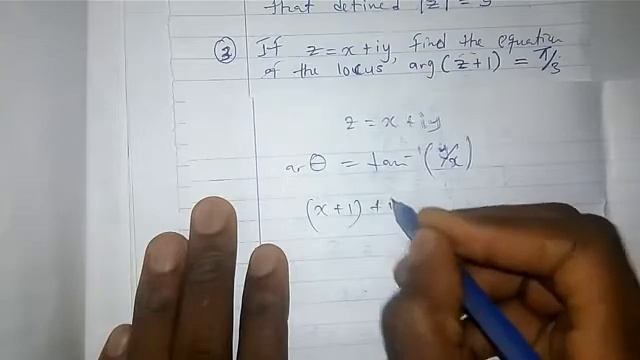 that defined |z| = 3
③ If z = x + iy, find the equation
of the locus arg(z+1) = π/3
z = x + iy
ar θ = tan⁻¹(y/x)
(x + 1) + i